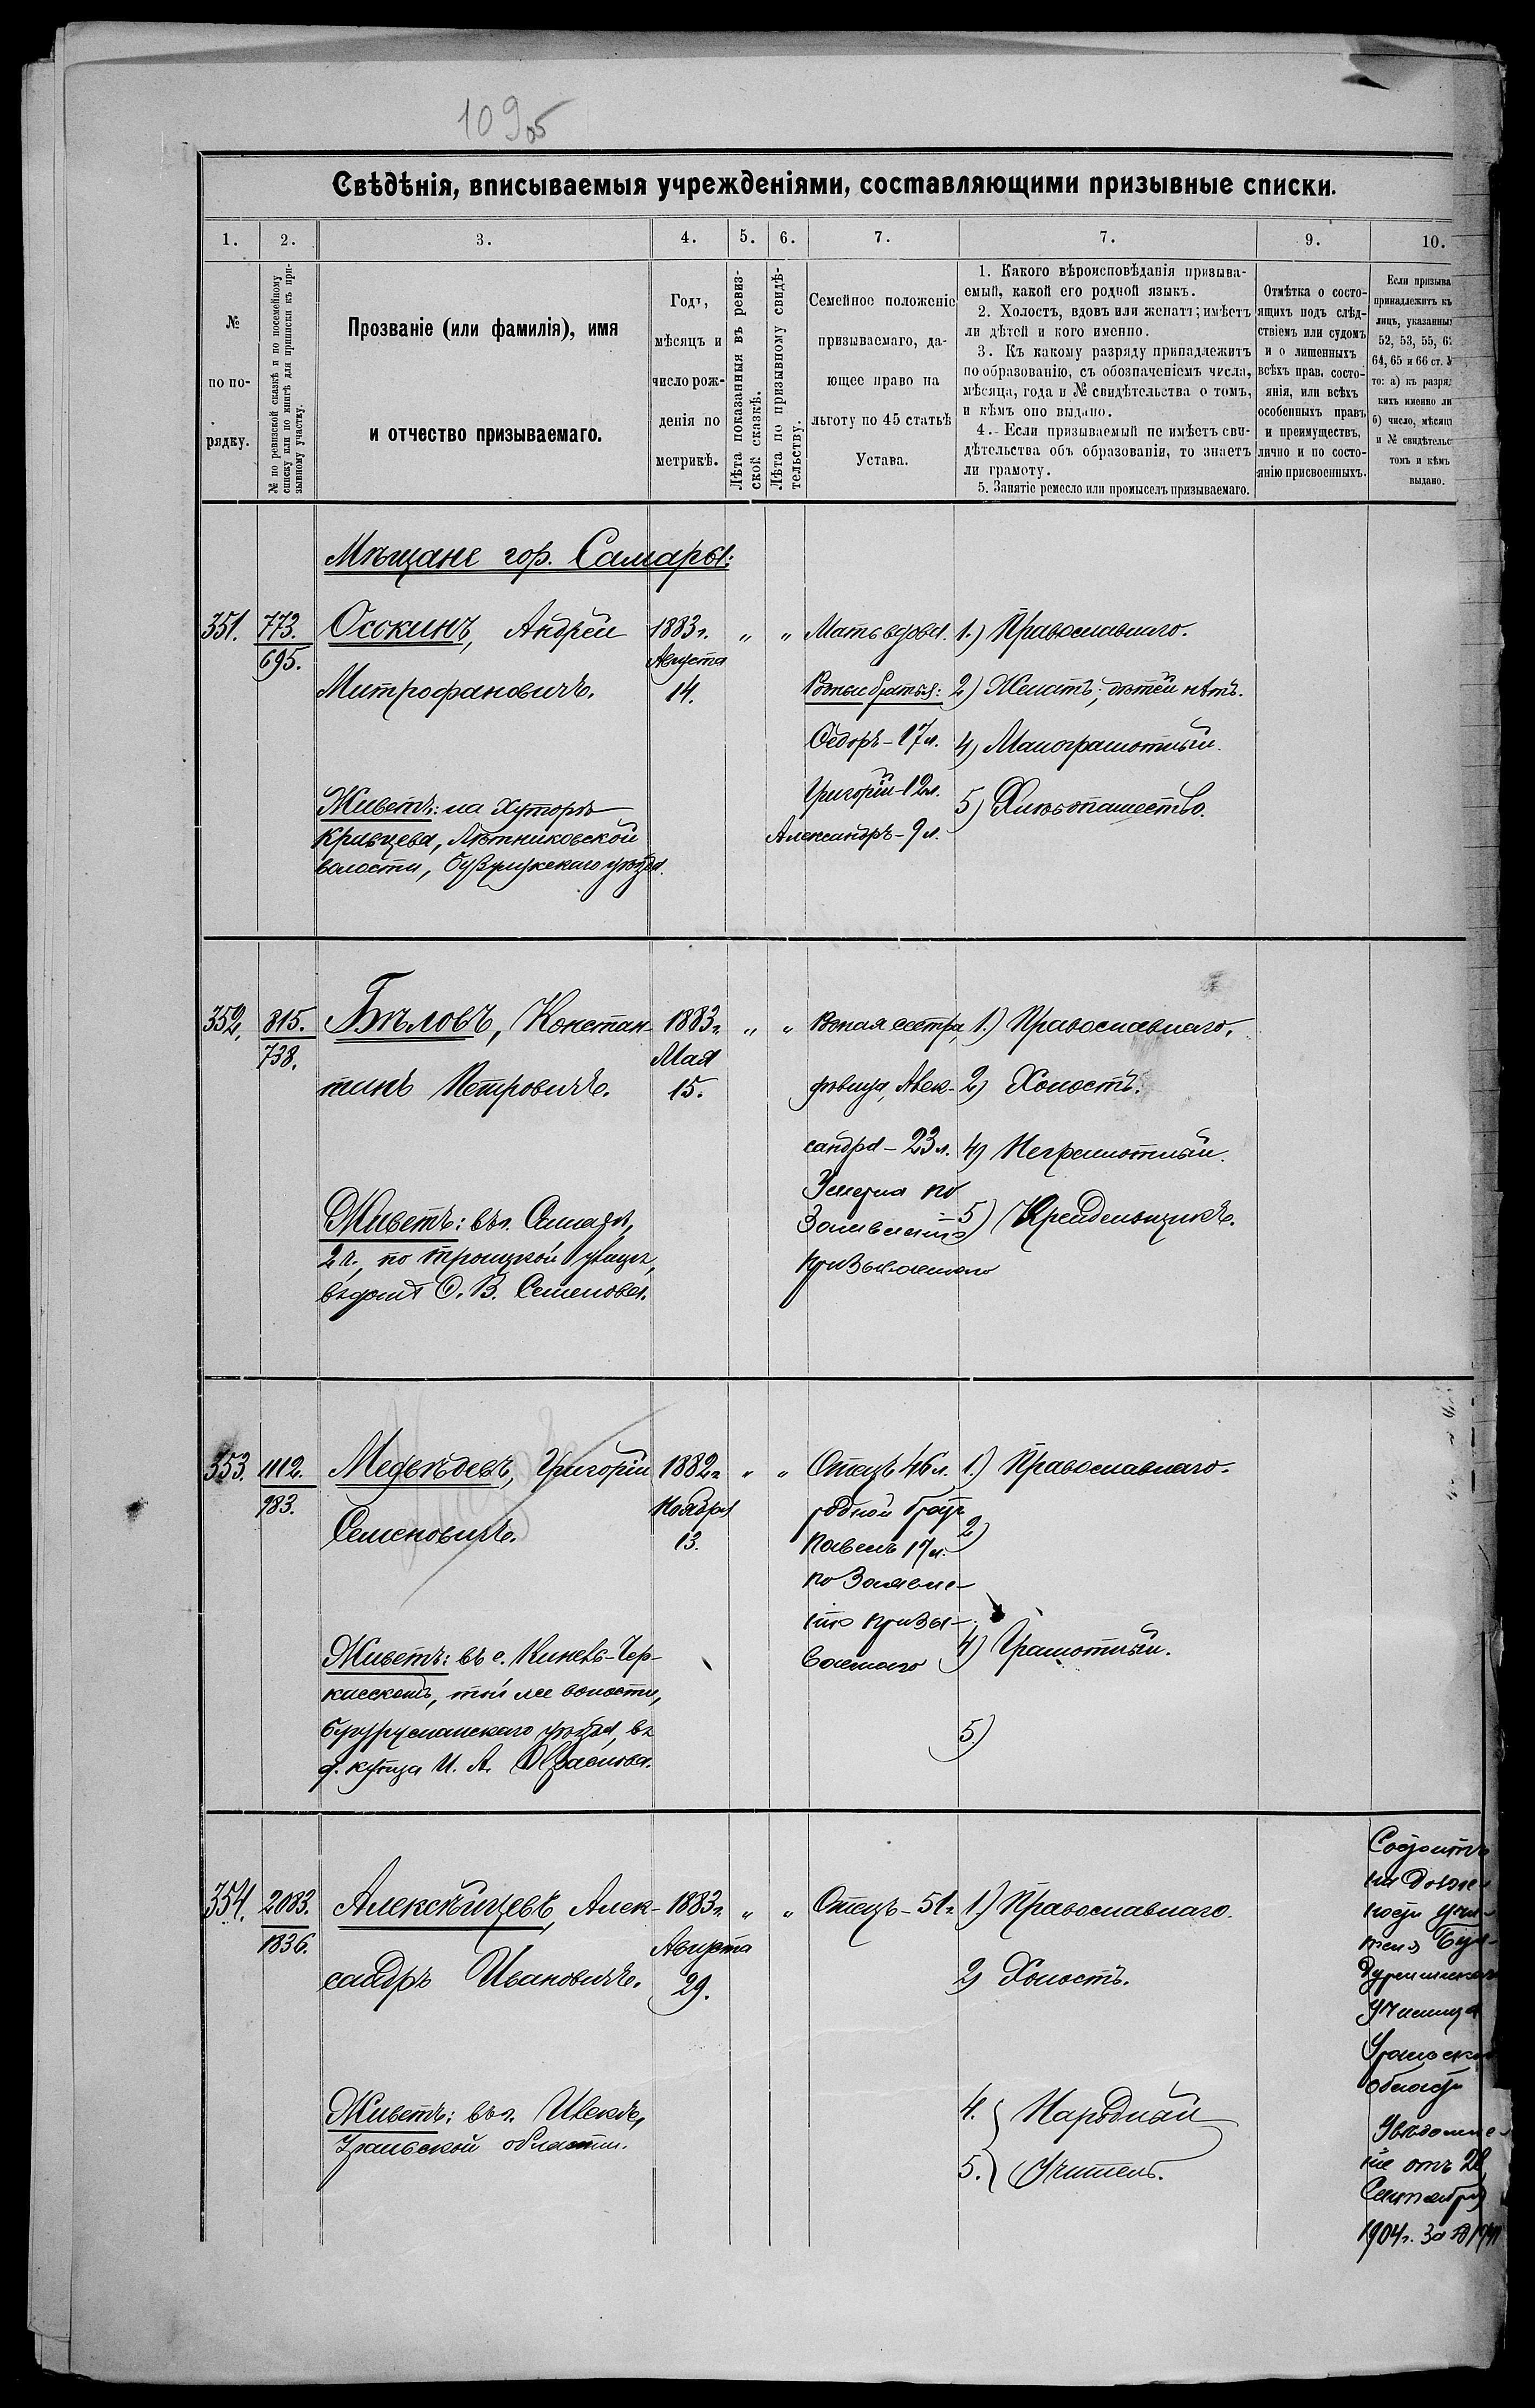 109 об
Свѣдѣнія, вписываемыя учрежденіями, составляющими призывные списки.
1. 2. 3. 4. 5. 6. 7. 7. 9. 10.
№
по по-
рядку.
№ по ревизской сказкѣ и по посемейному
списку или по книгѣ для приписки къ при-
зывному участку.
Прозваніе (или фамилія), имя
и отчество призываемаго.
Годъ,
мѣсяцъ и
число рож-
денія по
метрикѣ.
Лѣта показанныя въ ревиз-
ской сказкѣ.
Лѣта по призывному свидѣ-
тельству.
Семейное положеніе
призываемаго, да-
ющее право на
льготу по 45 статьѣ
Устава.
1. Какого вѣроисповѣданія призыва-
емый, какой его родной языкъ.
2. Холостъ, вдовъ или женатъ; имѣетъ
ли дѣтей и кого именно.
3. Къ какому разряду принадлежитъ
по образованію, съ обозначеніемъ числа,
мѣсяца, года и № свидѣтельства о томъ,
и кѣмъ оно выдано.
4. Если призываемый не имѣетъ сви-
дѣтельства объ образованіи, то знаетъ
ли грамоту.
5. Занятіе ремесло или промыселъ призываемаго.
Отмѣтка о состо-
ящихъ подъ слѣд-
ствіемъ или судомъ
и о лишенныхъ
всѣхъ прав, состо-
янія, или всѣхъ
особенныхъ правъ
и преимуществъ,
лично и по состо-
янію присвоенныхъ.
Если призыва
принадлежитъ къ
лицъ, указанных
52, 53, 55, 6
64, 65 и 66 ст. У
то: а) къ разряд
кихъ именно ли
б) число, мѣсяцъ
и № свидѣтельс
томъ и кѣмъ
выдано.
Мѣщане гор. Самары:
351. 773. Осокинъ, Андрей 1883г. " " Мать вдова. 1.) Православнаго.
695. Августа
Митрофановичъ. 14. Родные братья: 2) Женатъ; дѣтей нѣтъ.
Ѳедоръ - 17 л. 4) Малограмотный.
Григорій - 12 л. 5) Хлѣбопашество.
Александръ - 9 л.
Живетъ: на Хуторѣ
Кривцева, Лѣтниковской
волости, Бузулукскаго уѣзда.
352. 815. Бѣловъ, Констан- 1883г. " " Родная сестра, 1.) Православнаго.
738. Мая
тинъ Петровичъ. 15. дѣвица, Алек- 2) Холостъ.
сандра - 23 л. 4) Неграмотный.
Умерла по
Заявленію 5) Крендельщикъ.
призываемаго
Живетъ: въ г. Самарѣ,
2 ч., по Троицкой улицѣ,
въ домѣ О. В. Семенова.
353. 1112. Медвѣдевъ, Григорій 1882г. " " Отецъ 46 л. 1.) Православнаго.
983. Ноября
Семеновичъ. 13. родной братъ
Павелъ 17 л. 2)
по Заявле-
нію призы-
ваемаго 4) Грамотный.
5)
Живетъ: въ с. Кинель-Чер-
касскомъ, той же волости,
Бугурусланскаго уѣзда, въ
д. купца И. А.
354. 2083. Алексѣицевъ, Алек- 1883г. " " Отецъ - 51 г. 1.) Православнаго.
1836. Августа
сандръ Ивановичъ. 29. 2) Холостъ.
4. Народный
5. Учитель.
Живетъ: въ г. Илекѣ,
Уральской области.
Состоитъ
на долж-
ности учи-
теля
училища
Уральской
области
Увѣдомле-
ніе отъ 28
Сентября
1904 г. за №